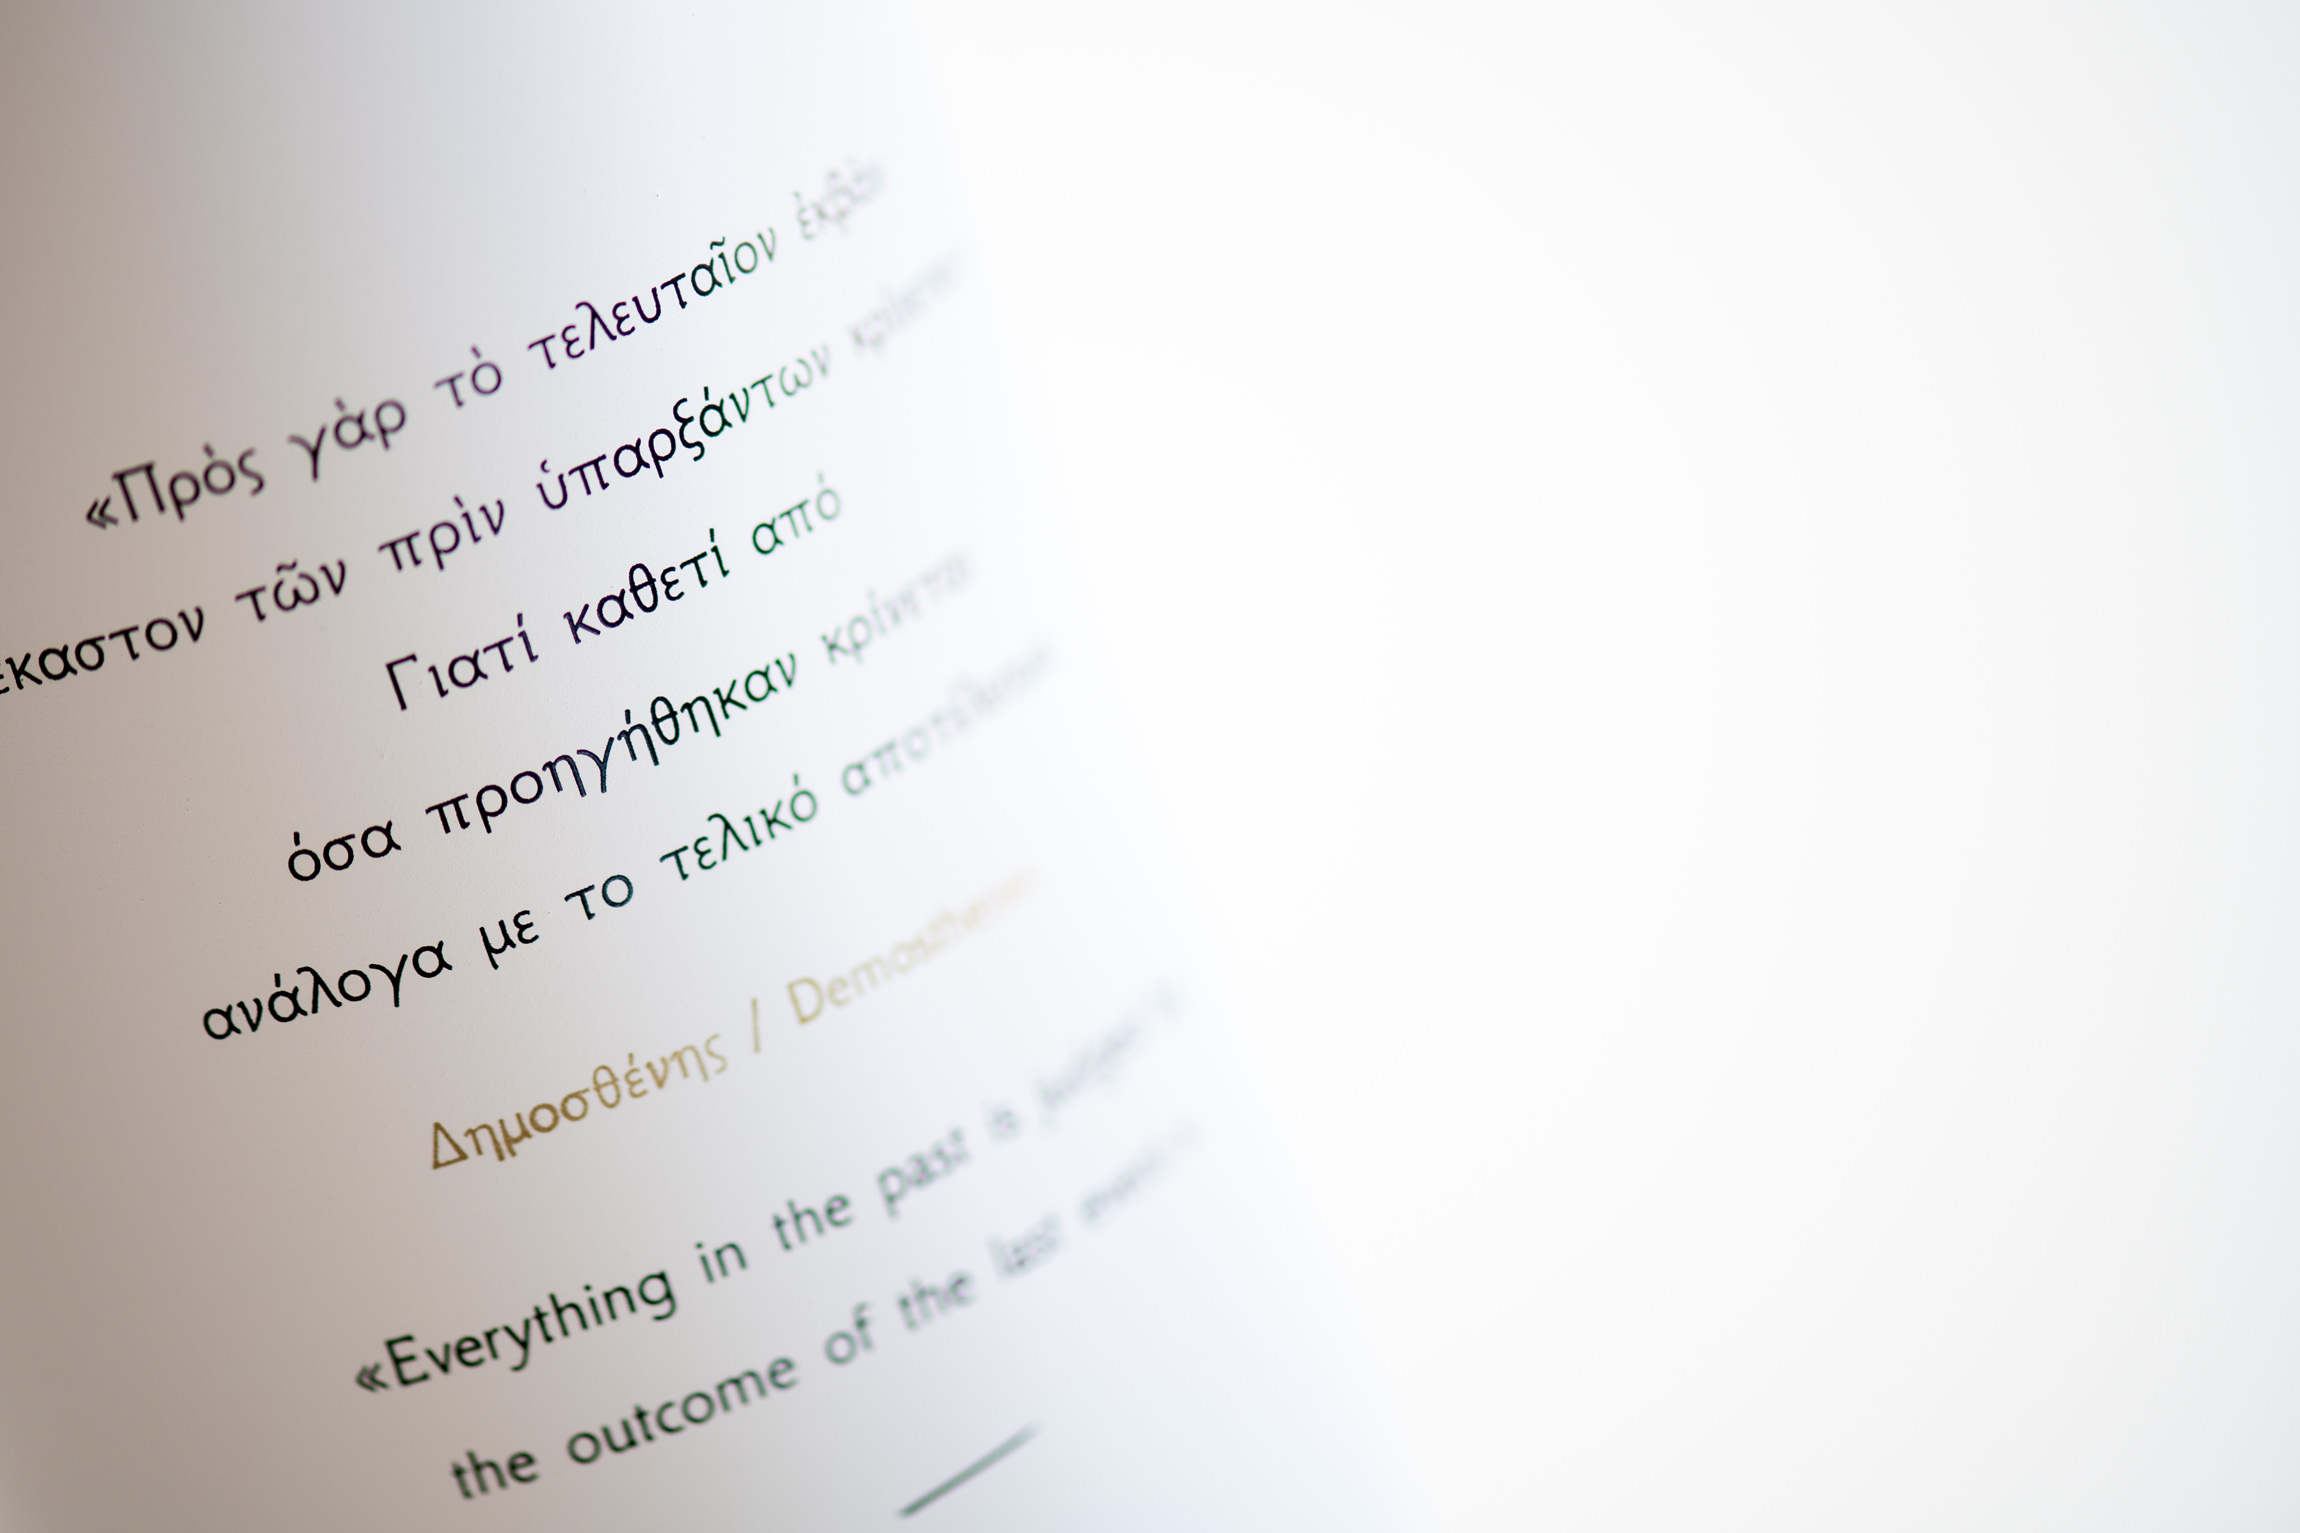 «Πρὸς γὰρ τὸ τελευταῖον
τῶν πρὶν ὑπαρξάντων
Γιατί καθετί από
όσα προηγήθηκαν κρίνεται
ανάλογα με το τελικό
Δημοσθένης / Demosthenes
«Everything in the past is
the outcome of the last